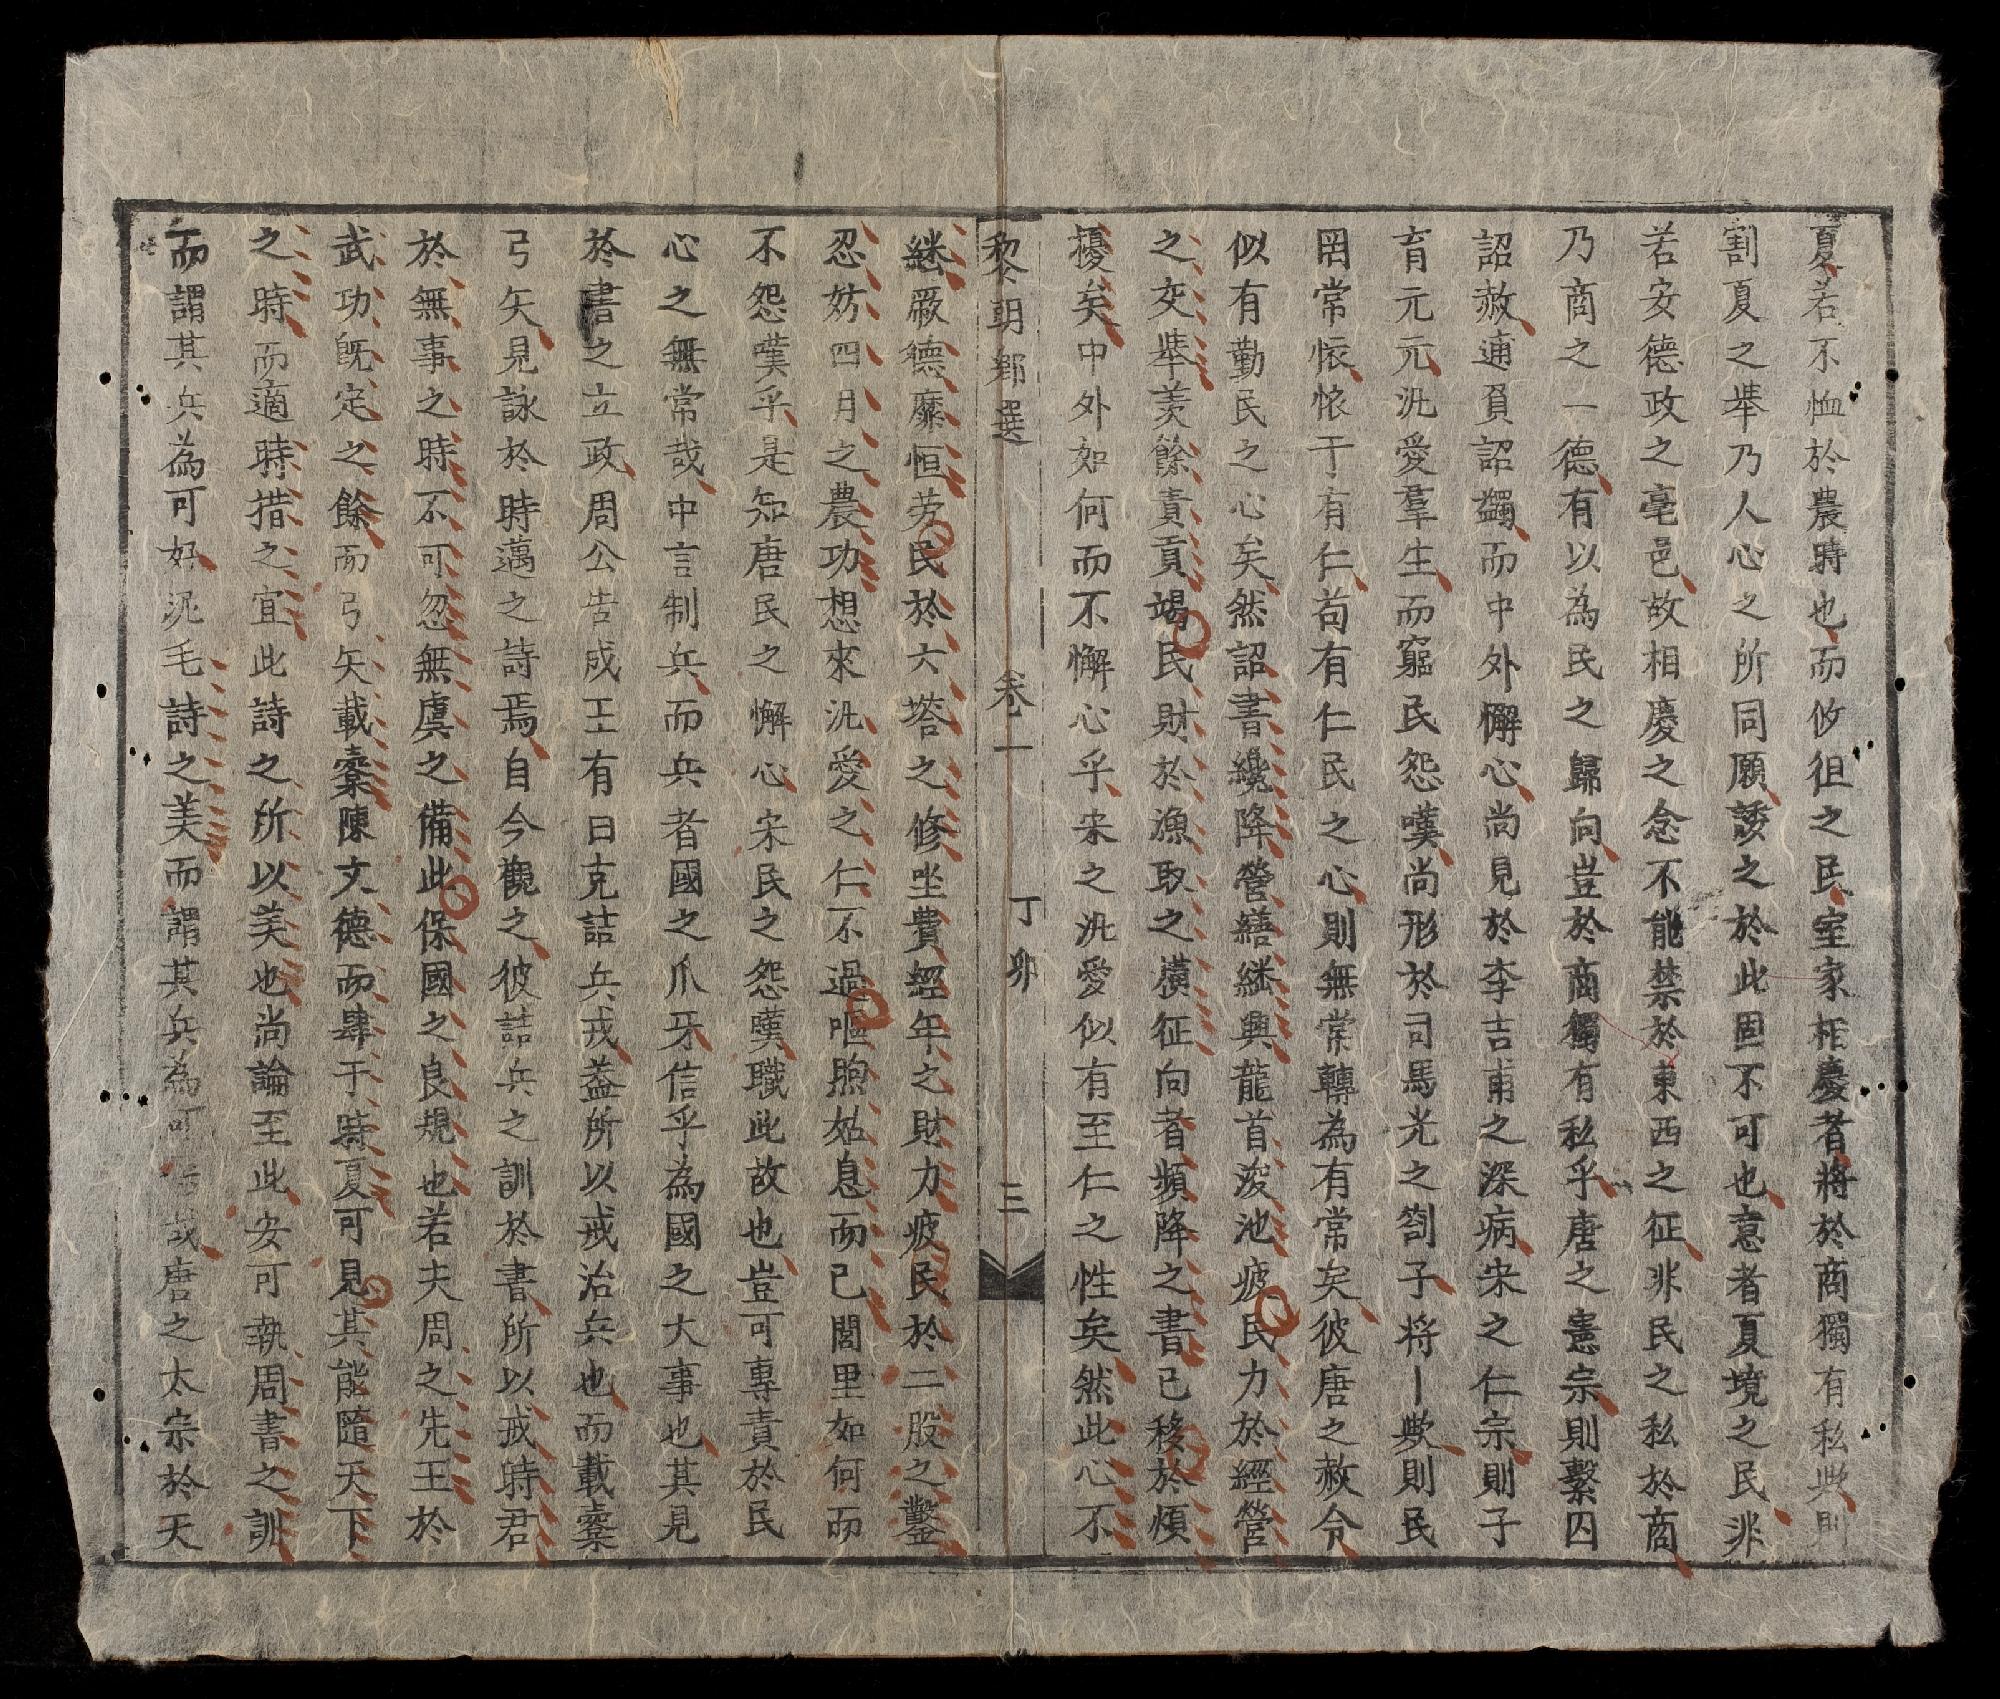 夏若不恤於農時也而攸徂之民室家相慶者將於商獨有私歟則
割夏之舉乃人心之所同願諉之於此固不可也意者夏境之民非
若安德政之亳邑故相慶之念不能禁於東西之征非民之私於商
乃商之一德有以為民之歸向豈於商獨有私乎唐之憲宗則繫囚
詔赦逋負詔蠲而中外懈心尚見於李吉甫之深病宋之仁宗則子
育元元汎愛羣生而窮民怨嘆尚形於司馬光之劄子將丨歟則民
罔常懷懷于有仁苟有仁民之心則無常轉為有常矣彼唐之赦令
似有勤民之心矣然詔書纔降營繕繼興龍首浚池疲民力於經營
之交舉羡餘責貢竭民財於漁取之橫征向者頻降之書已移於煩
擾矣中外如何而不懈心乎宋之汎愛似有至仁之性矣然此心不
黎朝鄉選　卷一　丁卯　三
継厥德靡恒劳民於六塔之修坐費經年之財力疲民於二股之鑿
忍妨四月之農功想來汎愛之仁不過嘔煦姑息而已閭里如何而
不怨嘆乎是知唐民之懈心宋民之怨嘆職此故也豈可專責於民
心之無常哉中言制兵而兵者國之爪牙信乎為國之大事也其見
於書之立政周公告成王有曰克詰兵戎盖所以戒治兵也而載櫜
弓矢見詠於時邁之詩焉自今觀之彼詰兵之訓於書所以戒時君
於無事之時不可忽無虞之備此保國之良規也若夫周之先王於
武功既定之餘而弓矢載櫜陳文德而肆于時夏可見其能隨天下
之時而適時措之宜此詩之所以美也尚論至此安可執周書之訓
而謂其兵為可好泥毛詩之美而謂其兵為可 哉唐之太宗於天